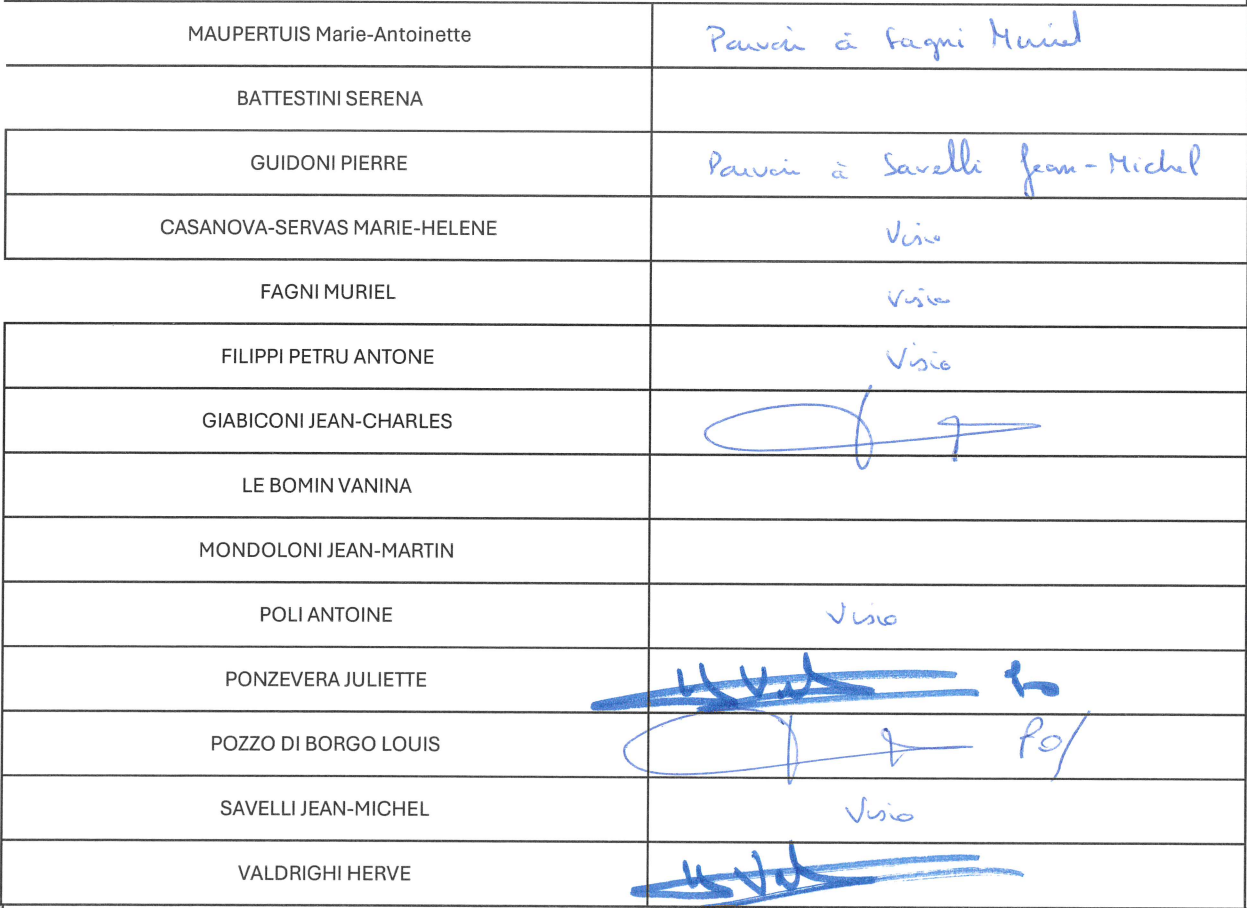 MAUPERTUIS Marie-Antoinette Pouvoir à Fagni Muriel
BATTESTINI SERENA
GUIDONI PIERRE Pouvoir à Savelli Jean-Michel
CASANOVA-SERVAS MARIE-HELENE Visio
FAGNI MURIEL Visio
FILIPPI PETRU ANTONE Visio
GIABICONI JEAN-CHARLES
LE BOMIN VANINA
MONDOLONI JEAN-MARTIN
POLI ANTOINE Visio
PONZEVERA JULIETTE
POZZO DI BORGO LOUIS PO/
SAVELLI JEAN-MICHEL Visio
VALDRIGHI HERVE